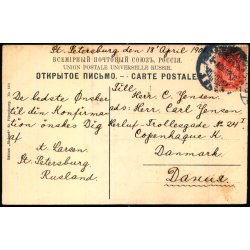 St. Petersburg den 18 April 190
ВСЕМІРНЫЙ ПОЧТОВЫЙ СОЮЗЪ. РОССІЯ.
UNION POSTALE UNIVERSELLE RUSSIE.
ОТКРЫТОЕ ПИСЬМО. - CARTE POSTALE
Till
De bedste Ønsker
til din Konfirma
tion ønskes Dig
af
A. Larsen
St. Petersburg
Rusland
Herr C. Jensen
Herr Carl Jensen
Herluf-Trollesgade No 24 I
Copenhague K.
Danmark
Danua